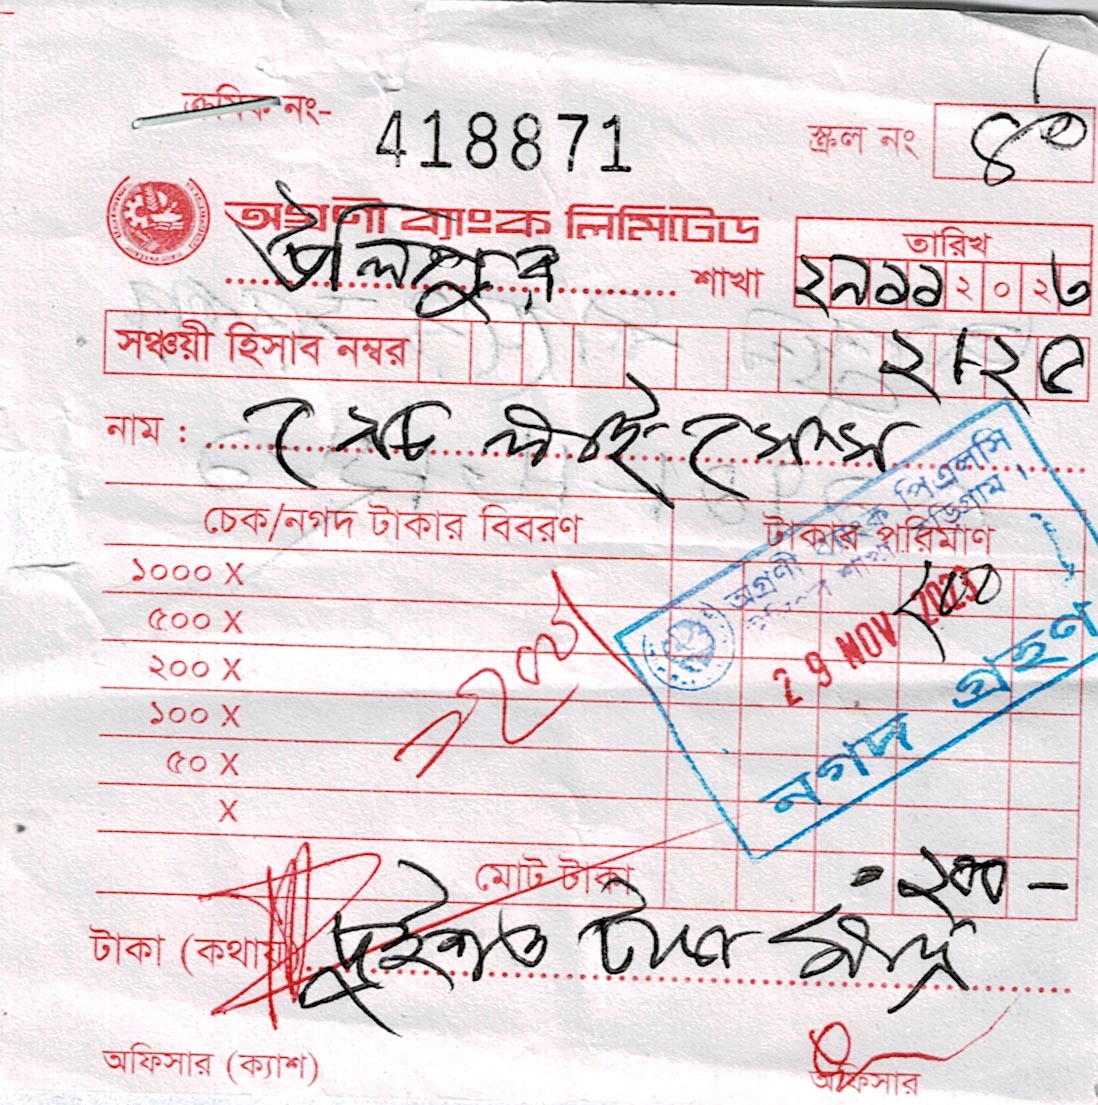 ক্রমিক নং- 418871
স্ক্রল নং ৪০
অগ্রণী ব্যাংক লিমিটেড
উলিপুর শাখা
তারিখ
২৯১১২০২৩
সঞ্চয়ী হিসাব নম্বর ২১২৫
নাম :
চেক/নগদ টাকার বিবরণ টাকার পরিমাণ
১০০০ X
৫০০ X
২০০ X
১০০ X
৫০ X
X
২০০
অগ্রণী ব্যাংক পিএলসি
উলিপুর শাখা, কুড়িগ্রাম।
29 NOV 2023
নগদ গ্রহণ
মোট টাকা = ২০০ –
টাকা (কথায়) দুইশত টাকা মাত্র
অফিসার (ক্যাশ) অফিসার